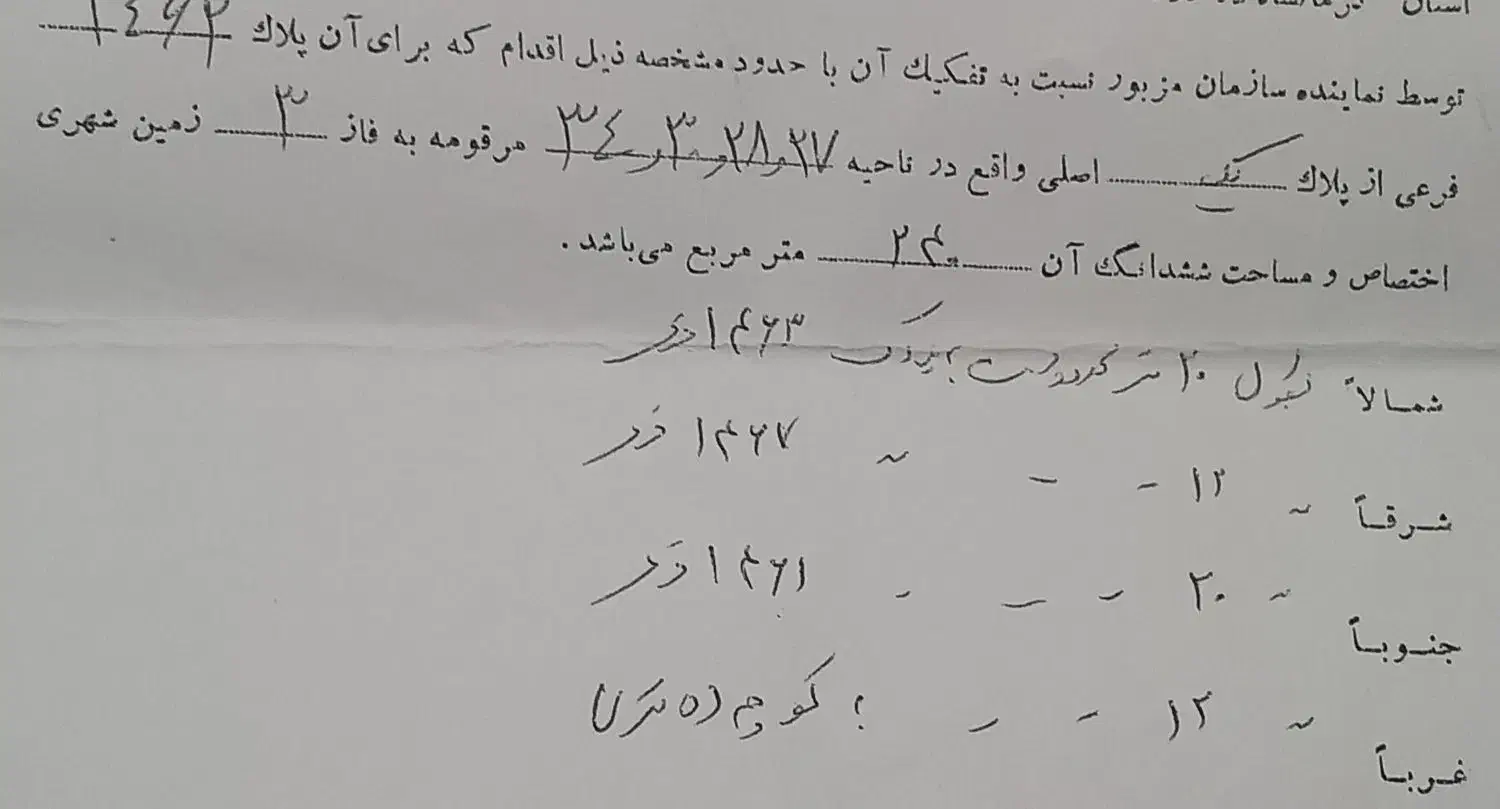 استان
توسط نماینده سازمان مزبور نسبت به تفکیك آن با حدود مشخصه ذیل اقدام که برای آن پلاك ۱٤۶۲
فرعی از پلاك یك اصلی واقع در ناحیه ۲۷و۲۸و۳۰و۳٤ مرقومه به فاز ۳ زمین شهری
اختصاص و مساحت ششدانگ آن ۲۴۰ متر مربع می‌باشد.
شمالاً بطول ۲۰ متر محدود است به پلاک ۱۴۶۳ فرعی
شرقاً " ۱۲ - - " ۱۴۶۷ فرعی
جنوباً " ۲۰ - - - ۱۴۶۱ فرعی
غرباً " ۱۲ - - به کوچه (۵ متری)